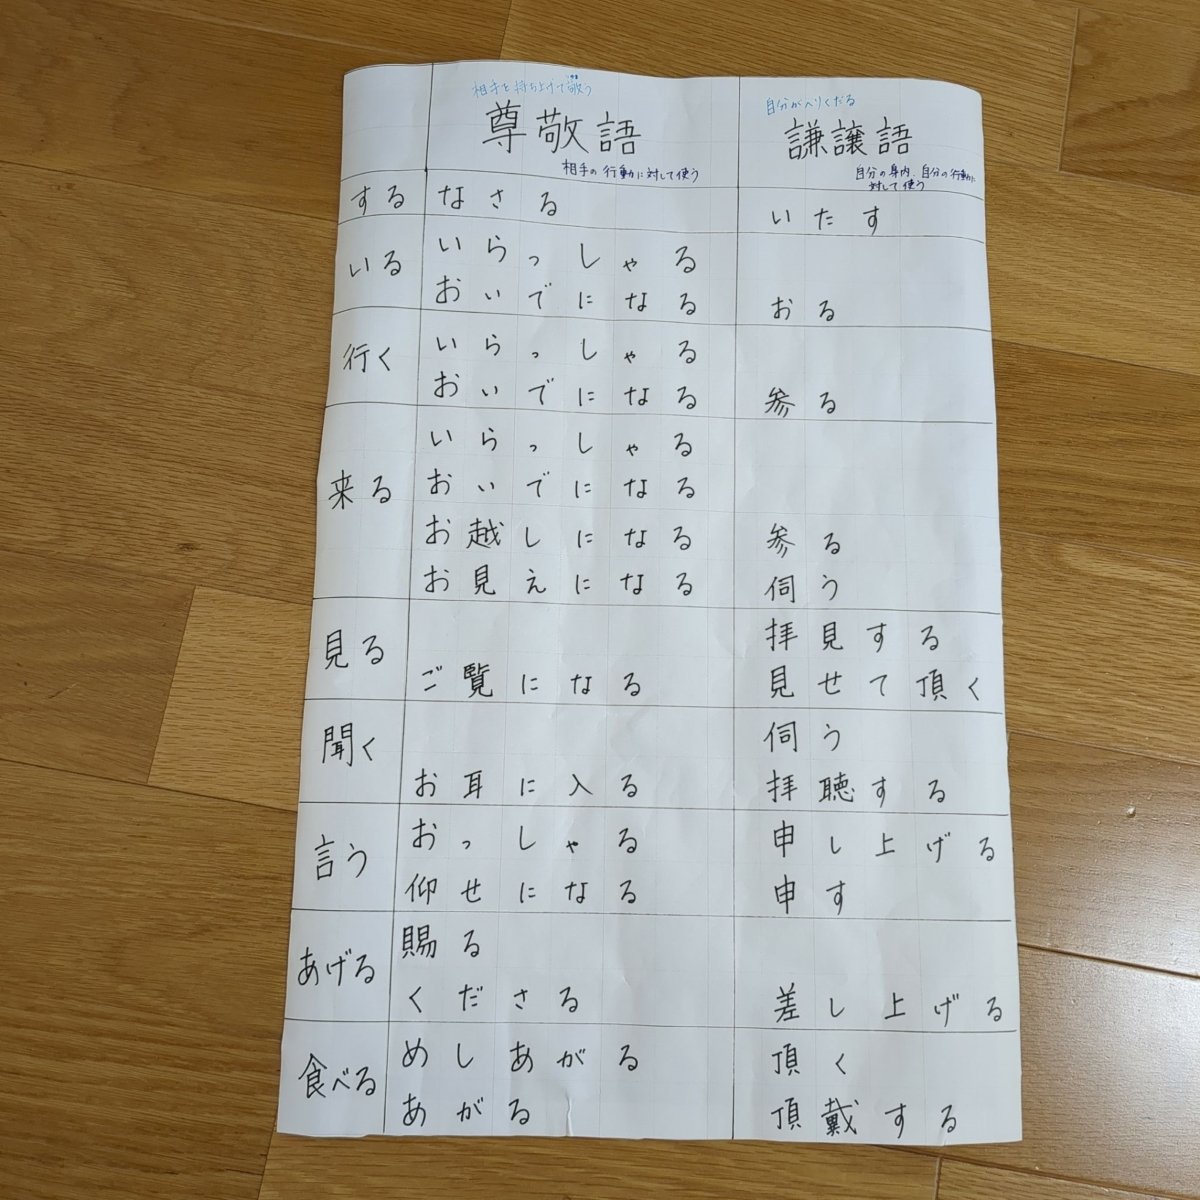 相手を持ち上げて敬う
尊敬語
相手の行動に対して使う
自分がへりくだる
謙譲語
自分の身内、自分の行動に
対して使う
する
なさる
いたす
いる
いらっしゃる
おいでになる
おる
行く
いらっしゃる
おいでになる
参る
来る
いらっしゃる
おいでになる
お越しになる
お見えになる
参る
伺う
見る
ご覧になる
拝見する
見せて頂く
聞く
お耳に入る
伺う
拝聴する
言う
おっしゃる
仰せになる
申し上げる
申す
あげる
賜る
くださる
差し上げる
食べる
めしあがる
あがる
頂く
頂戴する